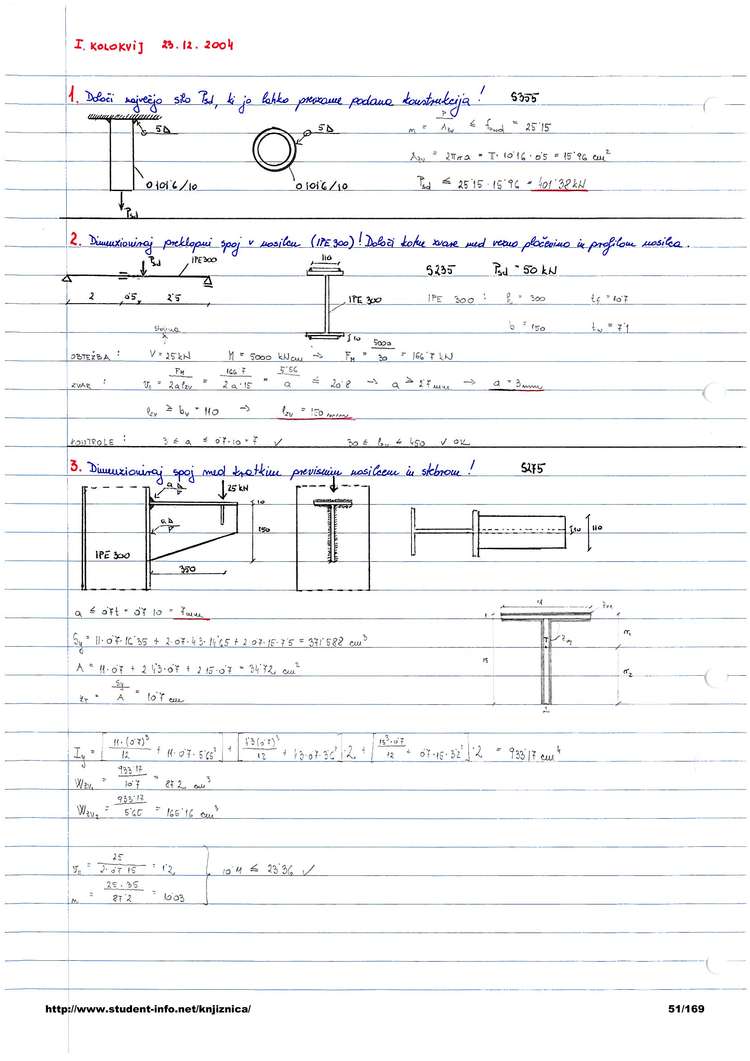 I. KOLOKVIJ 23.12.2004
1. Določi največjo silo Psd, ki jo lahko prevzame podana konstrukcija! S355
5△
5△
O 101'6/10
O 101'6/10
Psd
n = P/Azv ≤ fwd = 25'15
Azv = 2πra = π · 10'16 · 0'5 = 15'96 cm²
Psd ≤ 25'15 · 15'96 = 401'38 kN
2. Dimenzioniraj preklopni spoj v nosilcu (IPE 300)! Določi kotne zvare med vezno pločevino in profilom nosilca.
Psd IPE 300
2 0'5 2'5
110
IPE 300
10
S235 Psd = 50 kN
IPE 300 : h = 300 tf = 10'7
b = 150 tw = 7'1
stojina
OBTEŽBA : V = 25 kN M = 5000 kNcm → FM = 5000/30 = 166'7 kN
ZVAR : VII = FM/2alzv = 166'7/2·a·15 = 5'56/a ≤ 20'8 → a ≥ 2'7 mm → a = 3 mm
lzv ≥ bv = 110 → lzv = 150 mm
KONTROLE : 3 ≤ a ≤ 0'7·10 = 7 ✓ 30 ≤ lzv ≤ 450 ✓ OK
3. Dimenzioniraj spoj med kratkim previsnim nosilcem in stebrom! S275
a △
25 kN
10
a △
150
IPE 300
350
10 110
a ≤ 0'7t = 0'7·10 = 7 mm
Sy = 11·0'7·16'35 + 2·0'7·4'3·14'65 + 2·0'7·15·7'5 = 371'588 cm³
A = 11·0'7 + 2·4'3·0'7 + 2·15·0'7 = 34'72 cm²
zT = Sy/A = 10'7 cm
11
15
T
Iy = [11·(0'7)³/12 + 11·0'7·5'65²] + [4'3(0'7)³/12 + 4'3·0'7·3'6²]·2 + [15³·0'7/12 + 0'7·15·3'2²]·2 = 933'17 cm⁴
Wzv1 = 933'17/10'7 = 87'2 cm³
Wzv2 = 933'17/5'65 = 165'16 cm³
VII = 25/2·0'7·15 = 1'2
n = 25·35/87'2 = 10'03
10'11 ≤ 23'36 ✓
http://www.student-info.net/knjiznica/ 51/169